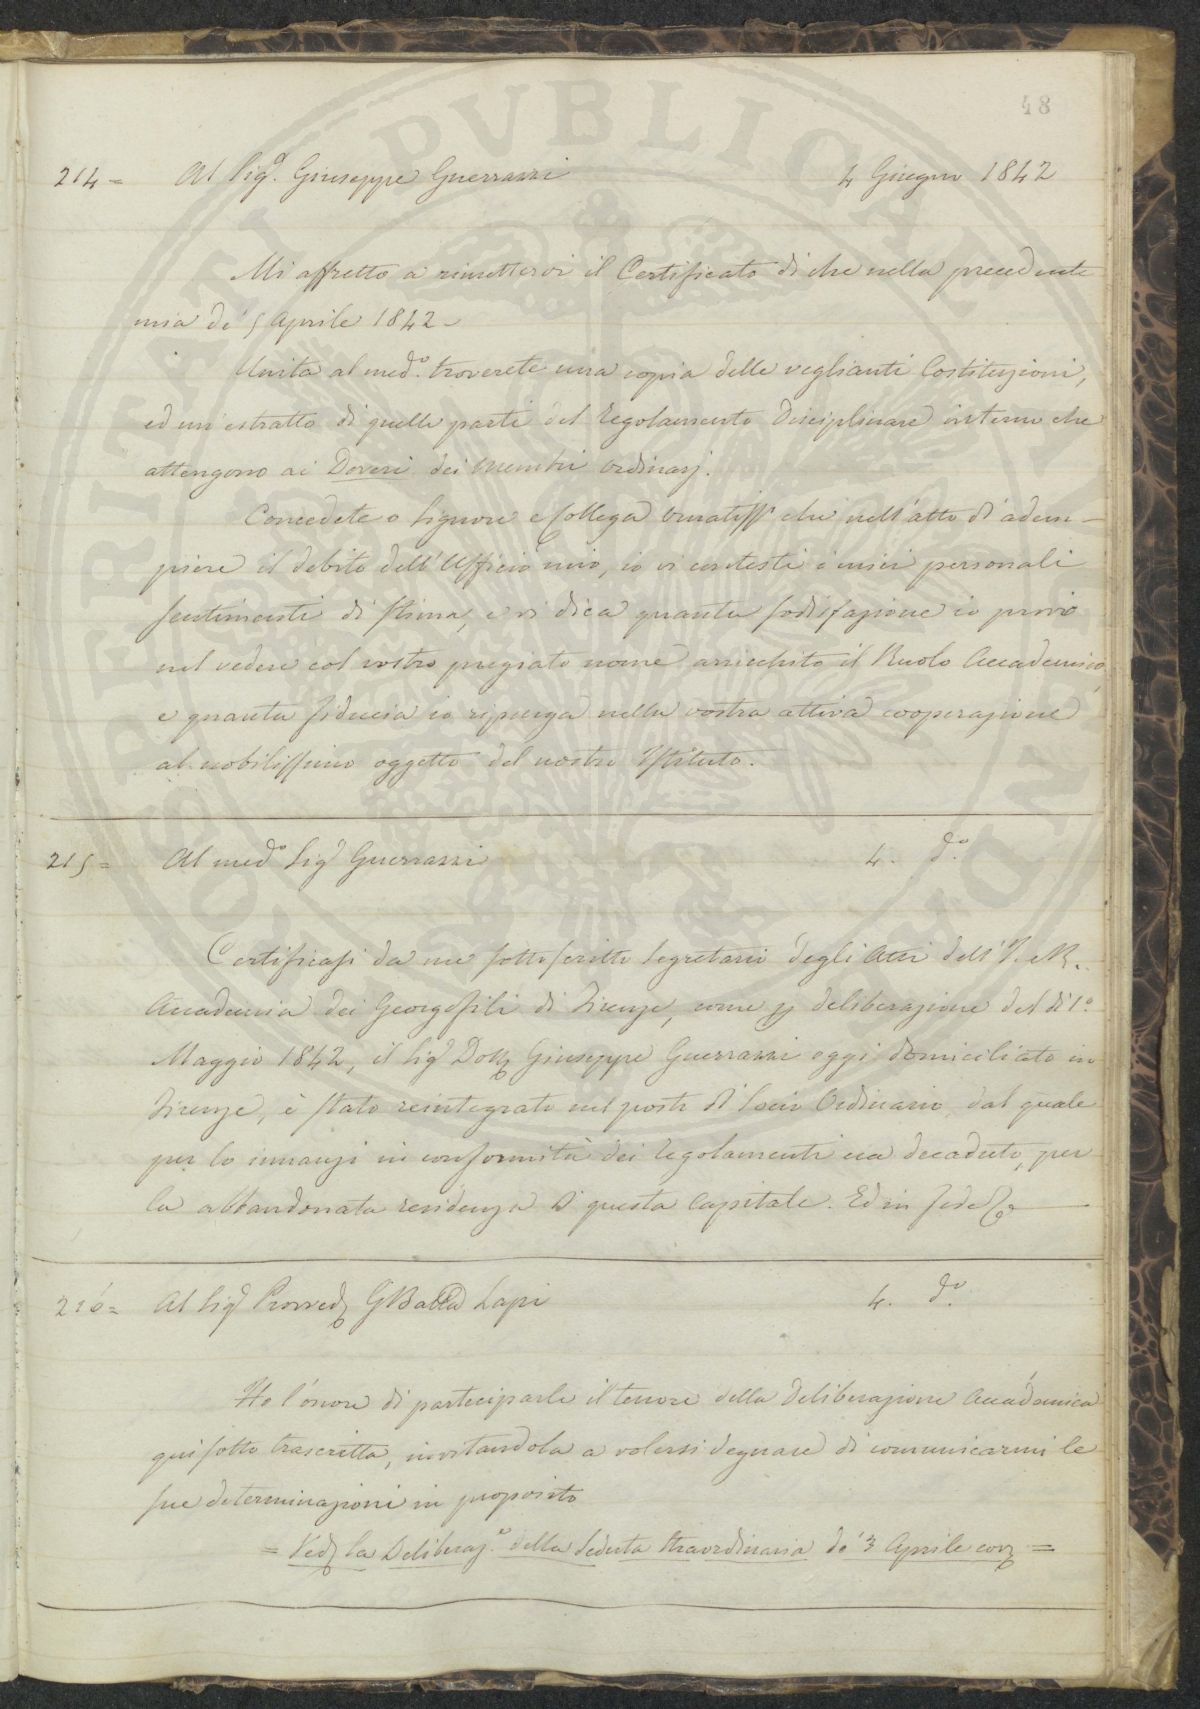 48
214 = Al Sigr. Giuseppe Guerrazzi 4 Giugno 1842
Mi affretto a rimettervi il Certificato di che nella precedente
mia de' 5 Aprile 1842 -
Unita al medo. troverete una copia delle veglianti Costituzioni,
ed un estratto di quelle parti del Regolamento Disciplinare interno che
attengono ai Doveri dei Membri Ordinarj.
Concedete o Signore e Collega Onoratiss. che nell'atto di adem-
piere il debito dell'Uffficio mio, io vi contesti i miei personali
sentimenti di stima, e vi dica quanta sodisfazione io provo
nel vedere col vostro pregiato nome arricchito il Ruolo Accademico,
e quanta fiducia io riponga nella vostra attiva cooperazione
al nobilissimo oggetto del nostro Istituto.
215 = Al medo Sigr Guerrazzi 4. do.
Certificasi da me sottoscritto Segretario degli Atti dell'I. e R.
Accademia dei Georgofili di Firenze, come p deliberazione del dì 1o.
Maggio 1842, il Sigr Dott Giuseppe Guerrazzi oggi domiciliato in
Firenze, è stato reintegrato nel posto di Socio Ordinario, dal quale
per lo innanzi in conformità dei regolamenti era decaduto, per
la abbandonata residenza di questa Capitale. Ed in fede &
216 = Al Sigr Provved G Batta Lapi 4. do.
Ho l'onore di parteciparle il tenore della deliberazione Accademica
qui sotto trascritta, invitandola a volersi degnare di comunicarmi le
sue determinazioni in proposito
= Ved la Deliberaze. della Seduta straordinaria de' 3 Aprile corr =
OSPERITATI PVBLICAE